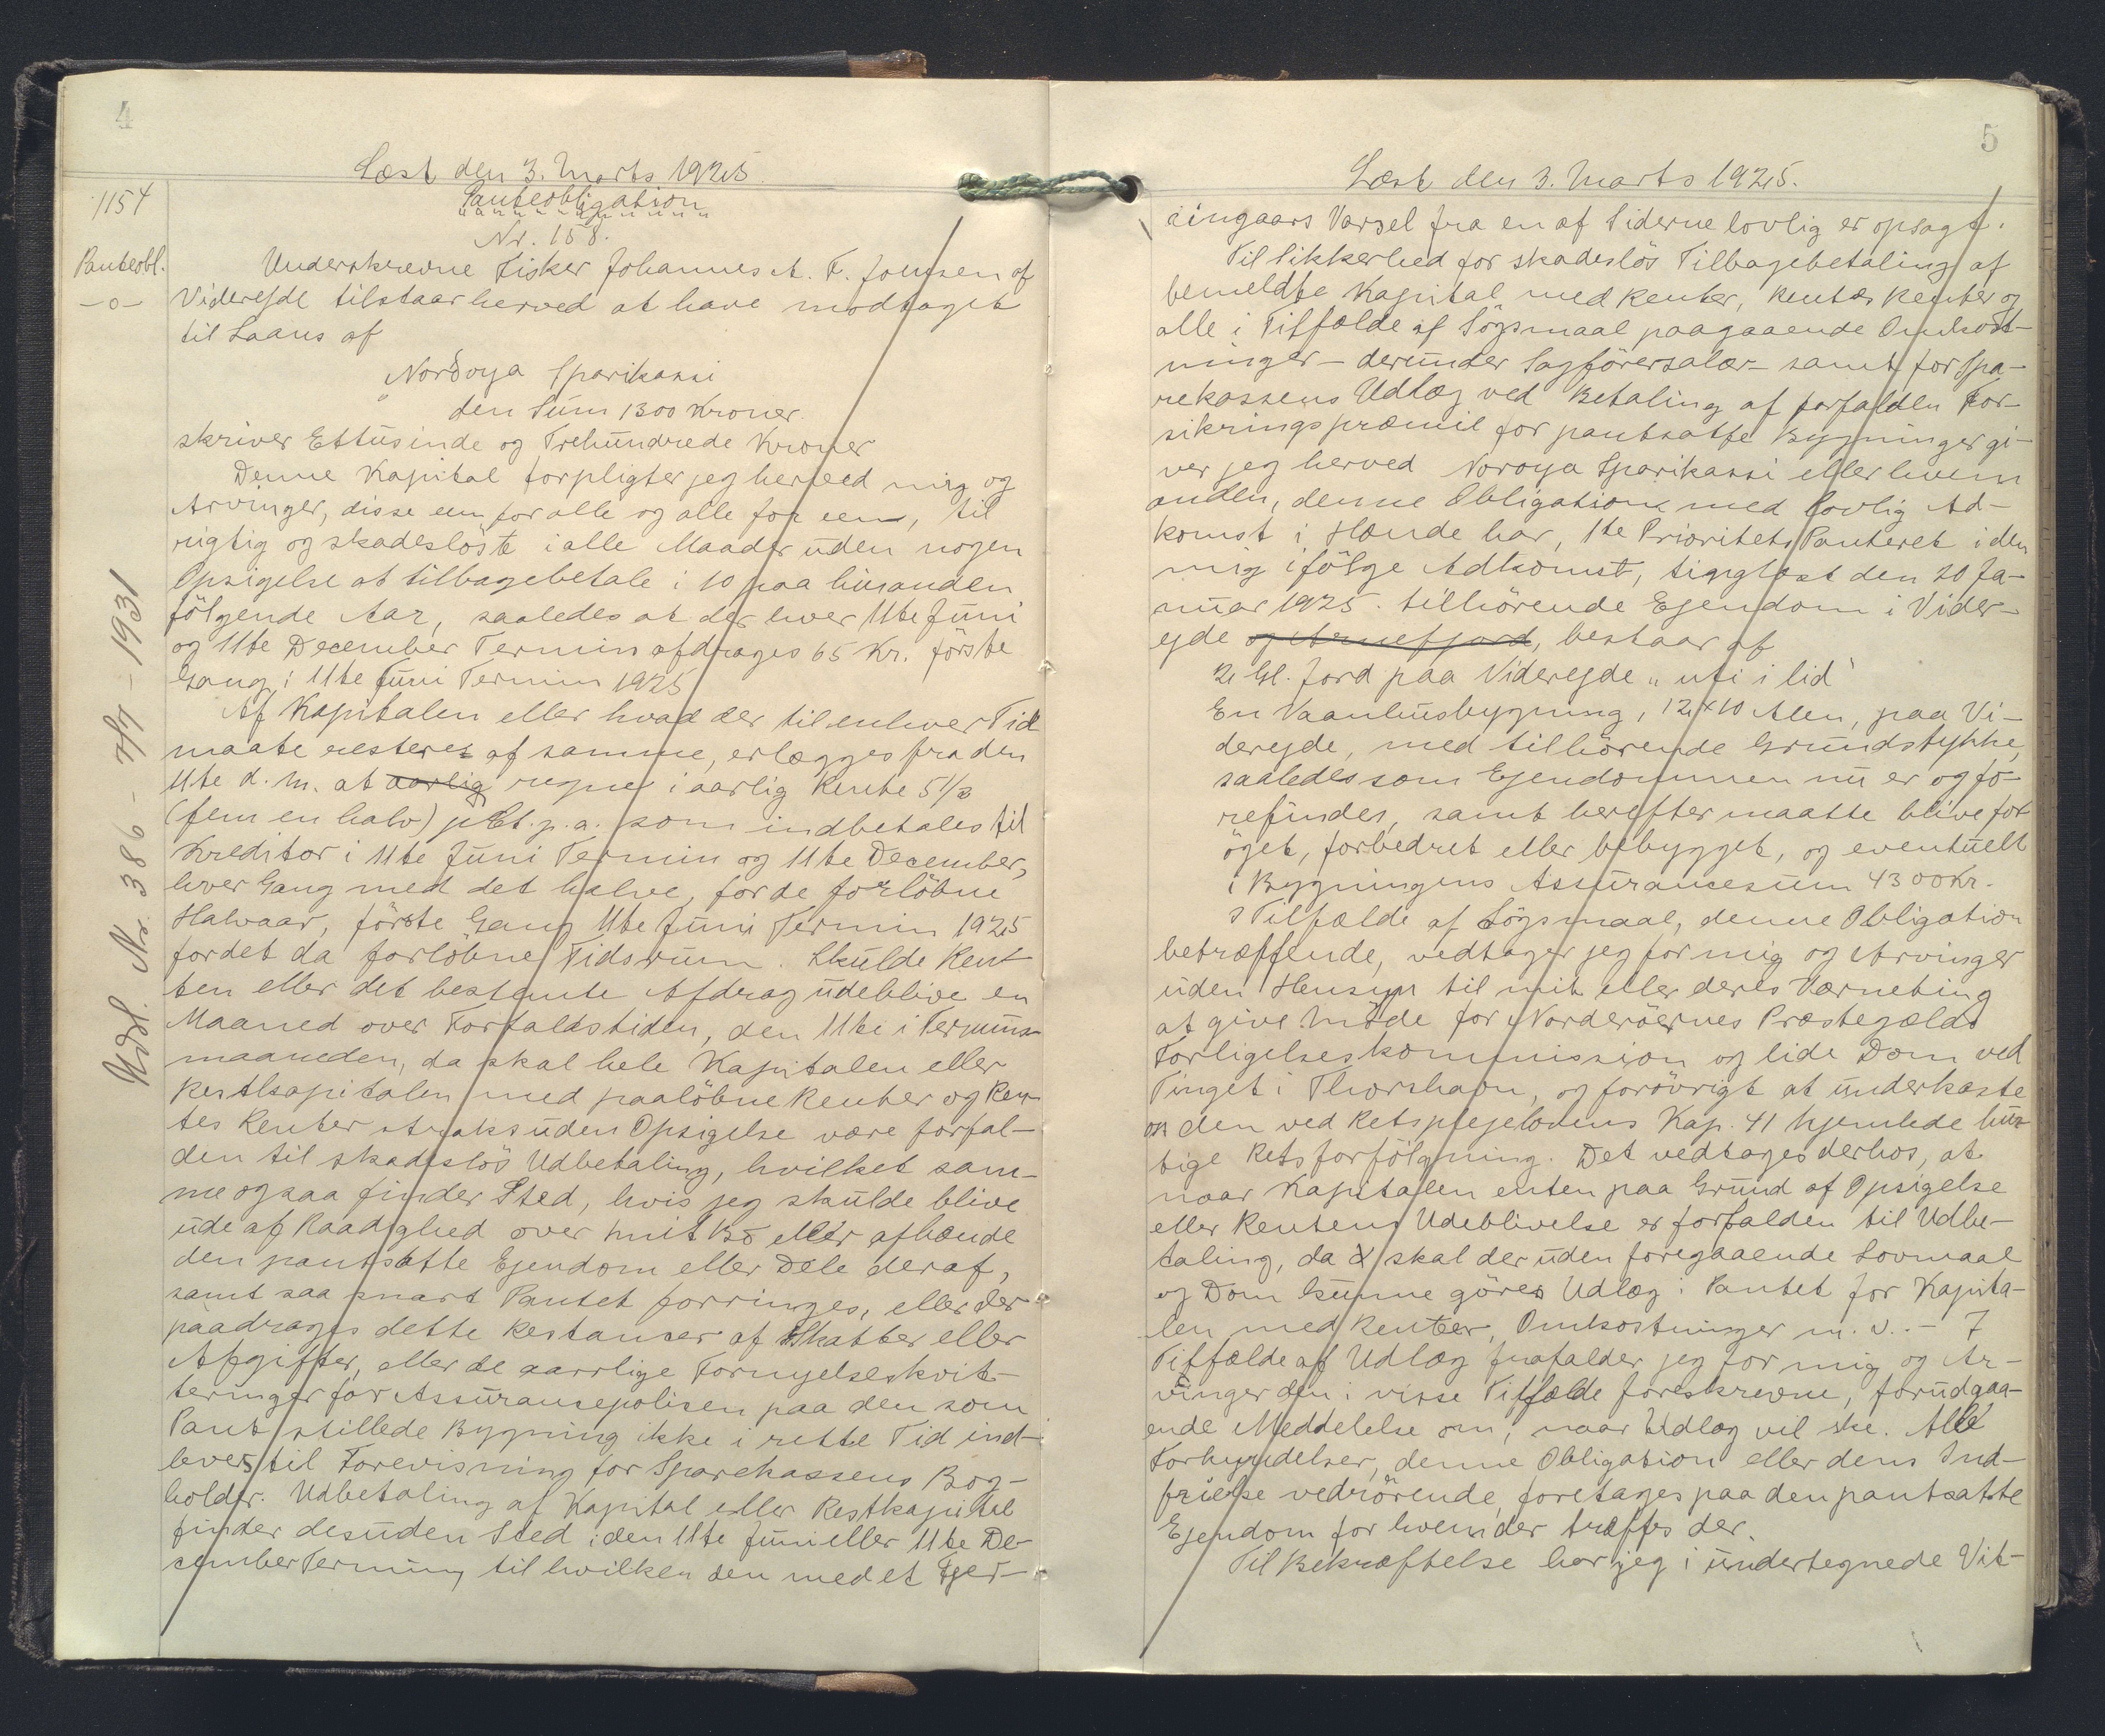 4
Læst den 3. Marts 1925.
1154
Panteobligation
Nr. 158.
Panteobl.
-o-
Underskrevne Fisker Johannes A. F. Joensen af
Viderejde tilstaar herved at have modtaget
til Laans af
Nordoya Sparikassi
den Sum 1300 Kroner.
skriver Ettusinde og Trehundrede Kroner
Denne Kapital forpligter jeg herved mig og
Arvinger, disse een for alle og alle for een, til
rigtig og skadesløst i alle Maader uden nogen
Opsigelse at tilbagebetale i 10 paa hinanden
følgende Aar, saaledes at der hver 11te Juni
og 11te December Termin afdrages 65 Kr. første
Gang i 11te Juni Termin 1925
Af Kapitalen eller hvad der til enhver Tid
maate resteret af samme, erlægges fra den
11te d. M. at aarlig regne i aarlig Rente 5 1/2
(fem en halv) pCt. p.a. som indbetales til
Kreditor i 11te Juni Termin og 11te December,
hver Gang med det halve, for de forløbne
Halvaar, første Gang 11te Juni Termin 1925
fordet da forløbne Tidsrum. Skulde Rent
ten eller det bestemte Afdrag udeblive en
Maaned over Forfaldstiden, den 11te i Termins-
maaneden, da skal hele Kapitalen eller
Restkapitalen med paaløbne Renter og Ren-
tes Renter straks uden Opsigelse være forfal-
den til skadesløs Udbetaling, hvilket sam-
me ogsaa finder Sted, hvis jeg skulde blive
ude af Raadighed over mit Bo eller afhænde
den pantsatte Ejendom eller Dele deraf,
samt saa snart Pantet forringes, eller der
paadrages dette Restancer af Skatter eller
Afgifter, eller de aarlige Fornyelseskvit-
teringer for Assurancepolisen paa den som
Pant stillede Bygning ikke i rette Tid ind-
levers til Forevisning for Sparekassens Bog-
holder. Udbetaling af Kapital eller Restkapital
finder desuden Sted i den 11te Juni eller 11te De-
cember Termin, til hvilken den med et Fjer-
Udsl. Nr. 386 - 7/7 - 1931
5
Læst den 3. Marts 1925.
dingaars Varsel fra en af Siderne lovlig er opsagt.
Til Sikkerhed for skadesløs Tilbagebetaling af
bemeldte Kapital med Renter, Rentes Renter og
alle i Tilfælde af Søgsmaal paagaaende Omkost-
ninger - derunder Sagførersalær - samt for Spa-
rekassens Udlæg ved Betaling af forfalden For-
sikringspræmie for pantsatte Bygninger gi-
ver jeg herved Noroya Sparikassi eller hvem
anden, denne Obligation med lovlig Ad-
komst i Hænde har, 1te Prioritets Panteret i den
mig ifølge Adkomst, tinglæst den 20 Ja-
nuar 1925. tilhørende Ejendom i Vider-
ejde og Arnefjord, bestaar af
2 Gl. Jord paa Viderejde "uti i lid"
En Vaanhusbygning, 12 x 10 Alen, paa Vi-
derejde, med tilhørende Grundstykke,
saaledes som Ejendommen nu er og fo-
refindes, samt herefter maatte blive for
øget, forbedret eller bebygget, og eventuelt
i Bygningens Assurancesum 4300 Kr.
I Tilfælde af Søgsmaal, denne Obligation
betræffende, vedtager jeg for mig og Arvinger
uden Hensyn til mit eller deres Værneting
at give Møde for Norderøernes Præstegælds
Forligelseskommission og lide Dom ved
Tinget i Thorshavn, og forøvrigt at underkaste
os den ved Retsplejelovens Kap. 41 hjemlede hur-
tige Retsforfølgning. Det vedtages derhos, at
naar Kapitalen enten paa Grund af Opsigelse
eller Rentens Udeblivelse er forfalden til Udbe-
taling, da skal der uden foregaaende Lovmaal
og Dom kunne gøres Udlæg i Pantet for Kapita-
len med Renter, Omkostninger m. v. - I
Tilfælde af Udlæg frafalder jeg for mig og Ar-
vinger den i visse Tilfælde foreskrevne, forudgaa-
ende Meddelelse om, naar Udlæg vil ske. Alle
Forkyndelser, denne Obligation eller dens Ind-
frielse vedrørende, foretages paa den pantsatte
Ejendom for hvem der træffes der.
Til Bekræftelse har jeg i undertegnede Vit-